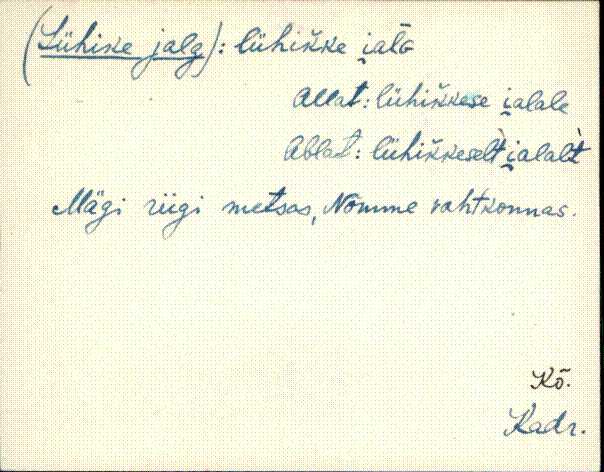 (Lühike jalg): lühik̆ke i̯alɢ
Allat: lühik̆kese i̯alale
Ablat: lühik̆keselt̀ i̯alalt̀
Mägi riigi metsas, Nõmme vahtkonnas.
Kõ.
Kadr.